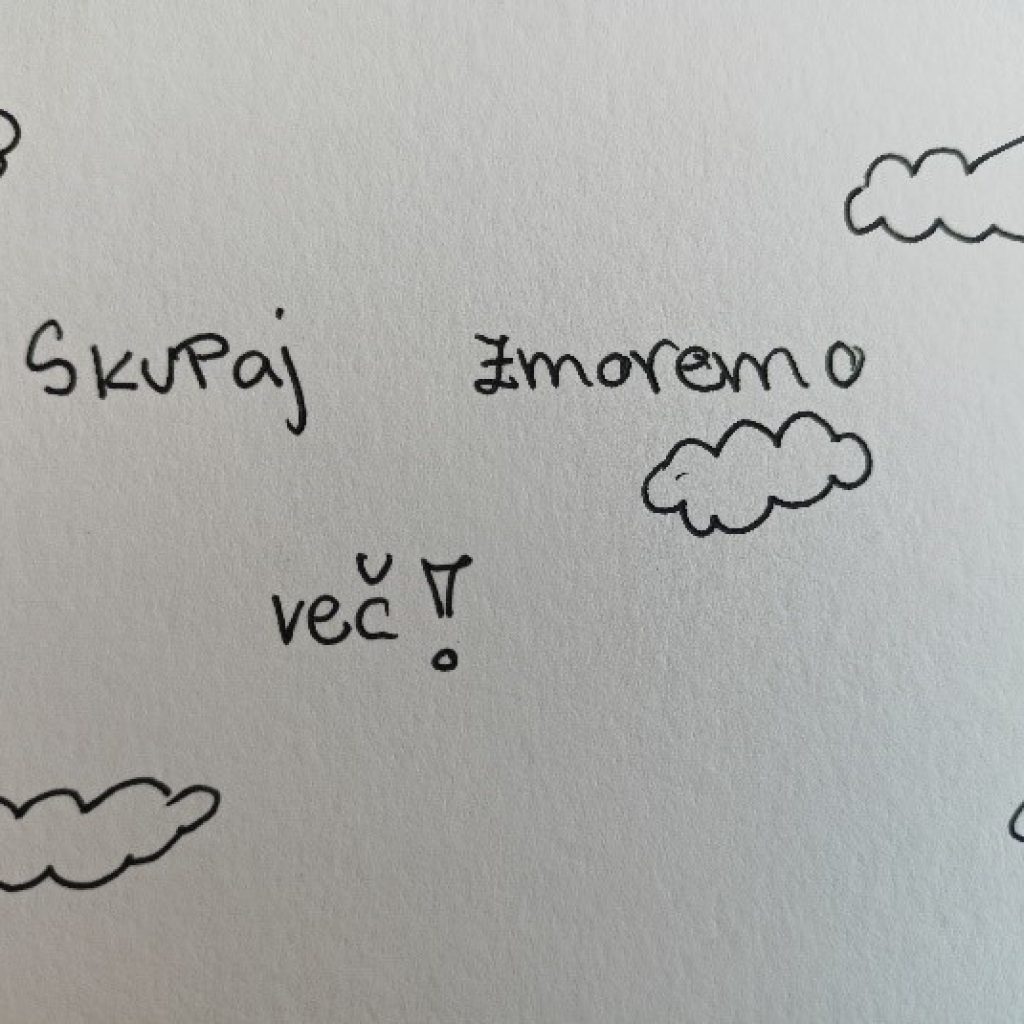 Skupaj zmoremo
več!